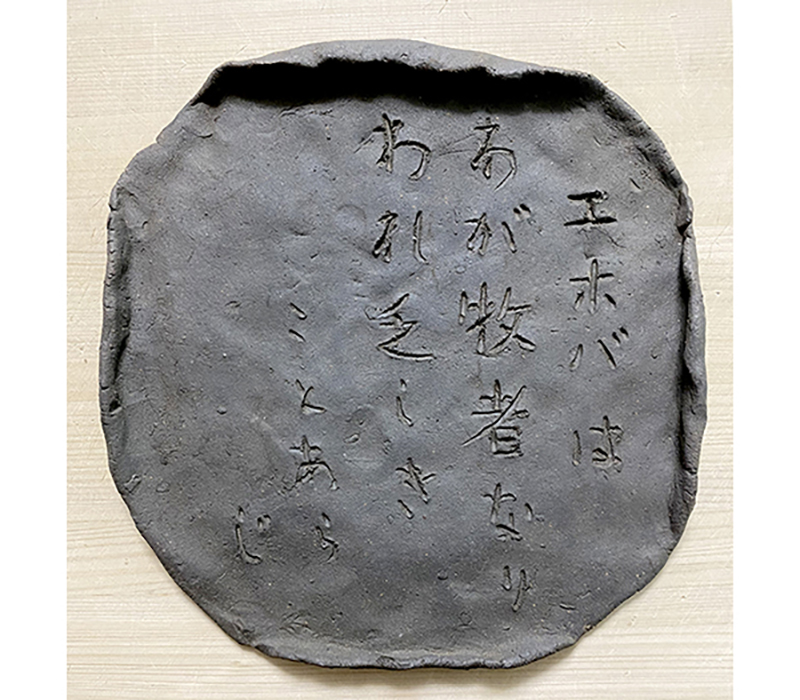 エホバは
わが牧者なり
われ乏しき
ことあら
じ